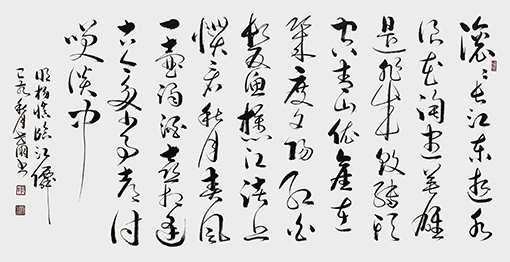 滚滚长江东逝水
浪花淘尽英雄
是非成败转头
空青山依旧在
几度夕阳红白
发渔樵江渚上
惯看秋月春风
一壶浊酒喜相逢
古今多少事都付
笑谈中
明杨慎临江仙
己亥秋月书